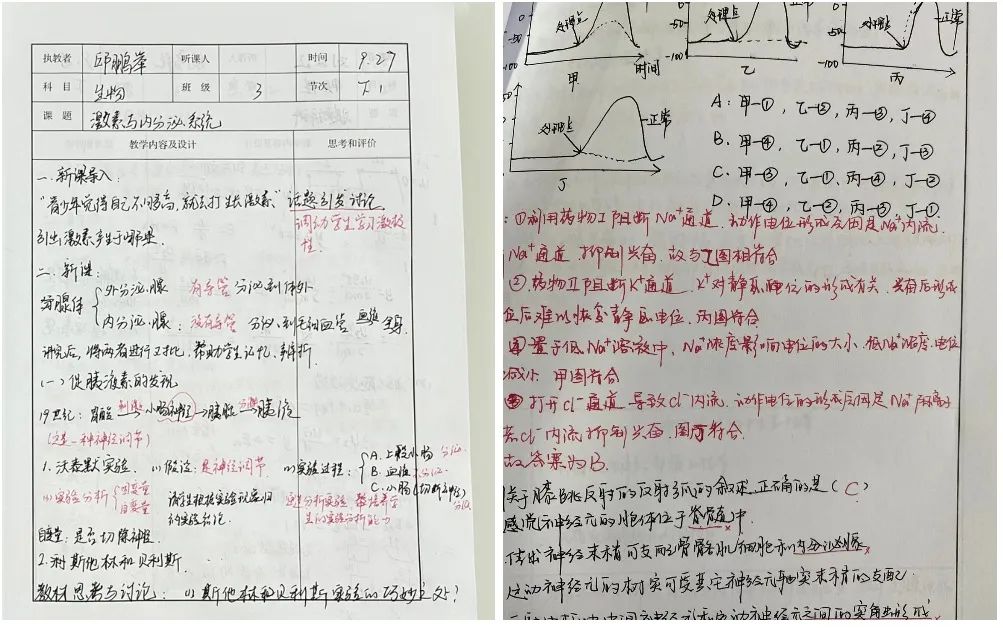 执教者 邱鹏举 听课人 时间 9.27
科目 生物 班级 3 节次 下1
课题 激素与内分泌系统
教学内容及设计 思考和评价
一.新课导入.
"青少年觉得自己不够高,就去打生长激素" 话题引发讨论
引出激素产生于哪里. 调动学生学习激素性.
二.新课:
外分泌腺 有导管 分泌到体外
腺体
内分泌腺: 没有导管 分泌到毛细血管 血液 全身
讲完后,将两者进行对比,帮助学生记忆、辨析
(一)促胰液素的发现
19世纪: 胃酸 刺激 小肠神经→胰腺 分泌 胰液
(这是一种神经调节)
1.沃泰默实验. (1)假设:是神经调节 (2)实验过程:
A.上段小肠 分泌.
B.血液 不分泌.
C.小肠(切断神经) 分泌
(3)实验分析 因变量 自变量
请学生根据实验现象归的实验结论.
自变量:是否切除神经
2.斯他林和贝利斯.
教材思考与讨论: (1)斯他林和贝利斯实验的巧妙之处?
0
-50
-100
处理点
甲
时间
-50
-100
处理点
乙
-50
-100
处理点
正常
丙
50
0
-50
-100
处理点
正常
丁
A:甲—①,乙—②,丙—③,丁—④
B.甲—④,乙—①,丙—②,丁—③
C.甲—③,乙—①,丙—④,丁—②
D.甲—④,乙—②,丙—③,丁—①
:①利用药物Ⅰ阻断Na⁺通道.动作电位形成原因是Na⁺内流.
Na⁺通道 抑制兴奋.故与乙图相符合
②.药物Ⅱ阻断K⁺通道.K⁺对静息电位的形成有关,兴奋后形成
位后难以恢复静息电位,丙图符合
④置于低Na⁺溶液中,Na⁺浓度影响电位的大小.低Na⁺浓度.电位
减小.甲图符合
③打开Cl⁻通道.导致Cl⁻内流.动作电位的形成原因是Na⁺内流
若Cl⁻内流抑制兴奋.图丁符合.
故答案为B.
关于膝跳反射的反射弧的叙述.正确的是(C)
感觉神经元的胞体位于脊髓中.
传出神经末梢可支配骨骼肌细胞和内分泌腺
运动神经元的树突可受其它神经元轴突末梢的支配.